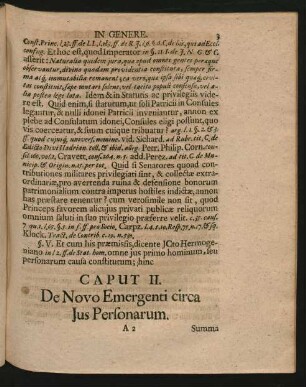 IN GENERE. 3
Const. Princ. l. 32. ff. de LL. l. 185. ff. de R. J. l. 9. §. 2. C. de his, qui ad Eccl.
confug. Et hoc est, quod Imperator in §. 11. I. de J. N. G. & C.
asserit: Naturalia quidem jura, quæ apud omnes gentes peræque
observantur, divina quadam providentia constituta, semper firma
atq; immutabilia remanent; ea vero, quæ ipsa sibi quæq; civitas
constituit, sæpe mutari solent, vel tacito populi consensu, vel alia
postea lege lata. Idem & in Statutis ac privilegiis videre
est. Quid enim, si statutum, ut soli Patricii in Consules
legantur, & nulli Patricii idonei inveniantur, annon ex
plebe ad Consulatum idonei, Consules eligi possunt, quo
vis coerceatur, & suum cuique tribuatur?
quod cujusq; universi, nomine. Vid. Sichard. ad Rubr. tit. C. de
Edicto Divi Hadrian. toll. & ibid. alleg. Peer. Philip. Corn. consil.
Cravett. add. Perez. ad tit. C. de
Quid si Senatores quoad contributiones
militares privilegiati sint, & collectæ extraordinariæ,
pro avertenda ruina & defensione bonorum
patrimonialium contra imperus hostiles indictæ, annon
has præstare tenentur? cum verosimile non sit, quod
Princeps favorem alicujus privati publicæ reliquorum
omnium saluti in suo privilegio præferre velit.
Carpz.
Klock. Tract. de Contrib.
§. V. Et cum his præmissis, dicente JCto Hermogeniano
in l. 2. ff. de Stat. hom. omne jus primo hominum, seu
personarum causa constitutum; hinc
CAPUT II.
De Novo Emergenti circa
Jus Personarum.
A 2 Summa